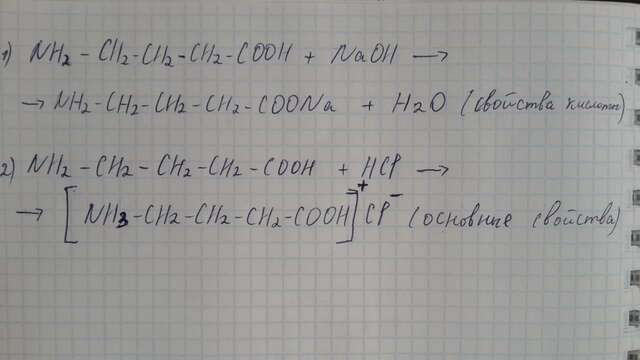 1) NH2 - CH2-CH2-CH2-COOH + NaOH →
→ NH2-CH2-CH2-CH2-COONa + H2O (свойства кислоты)
2) NH2 - CH2 - CH2 - CH2 - COOH + HCl →
→ [NH3-CH2-CH2-CH2-COOH]+ Cl- (основные свойства)